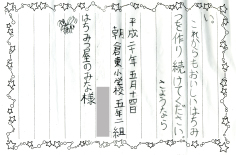 い。
これからもおいしいはちみ
つを作り続けてください。
さようなら
平成二十年五月十四日
朝倉東小学校 五年二組
はちみつ屋のみな様